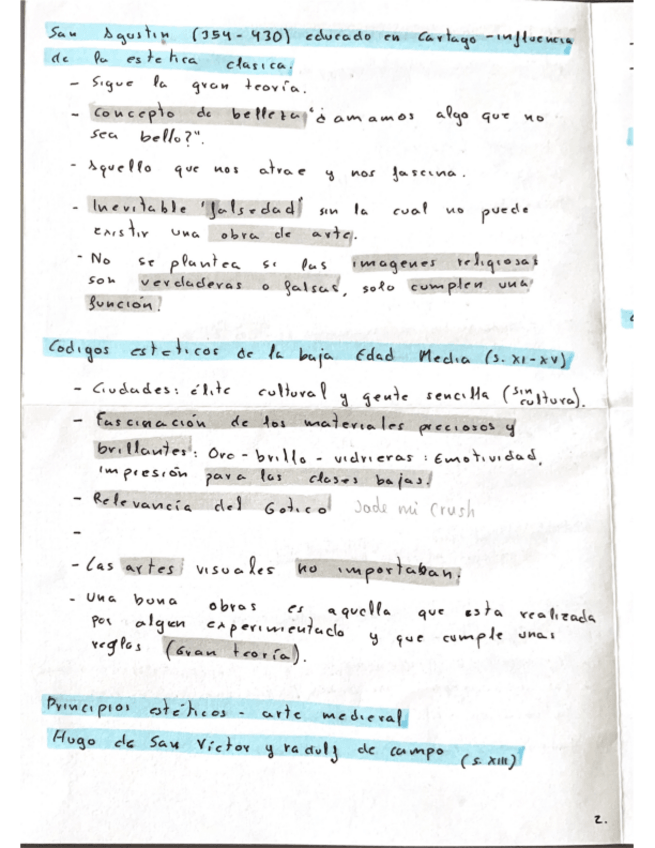 San Agustin (354-430) educado en Cartago - influencia
de la estetica clasica.
- Sigue la gran teoría.
- Concepto de belleza "¿amamos algo que no
sea bello?".
- Aquello que nos atrae y nos fascina.
- Inevitable "falsedad" sin la cual no puede
existir una obra de arte.
- No se plantea si las imagenes religiosas
son verdaderas o falsas, solo cumplen una
función.
Codigos esteticos de la baja Edad Media (s. XI-XV)
- Ciudades: élite cultural y gente sencilla (sin cultura).
- Fascinación de los materiales preciosos y
brillantes: Oro - brillo - vidrieras: Emotividad,
impresión para las clases bajas.
- Relevancia del Gotico Jode mi Crush
-
- Las artes visuales no importaban.
- Una buna obras es aquella que esta realizada
por algun experimentado y que cumple unas
reglas (Gran teoría).
Principios estéticos - arte medieval
Hugo de San Victor y radulf de campo (s. XIII)
2.